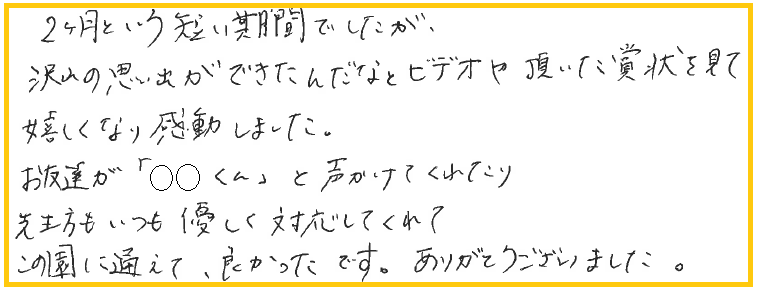 2ヶ月という短い期間でしたが、
沢山の思い出ができたんだなとビデオや頂いた賞状を見て
嬉しくなり感動しました。
お友達が「○○くん」と声かけてくれたり
先生方もいつも優しく対応してくれて
この園に通えて、良かったです。ありがとうございました。